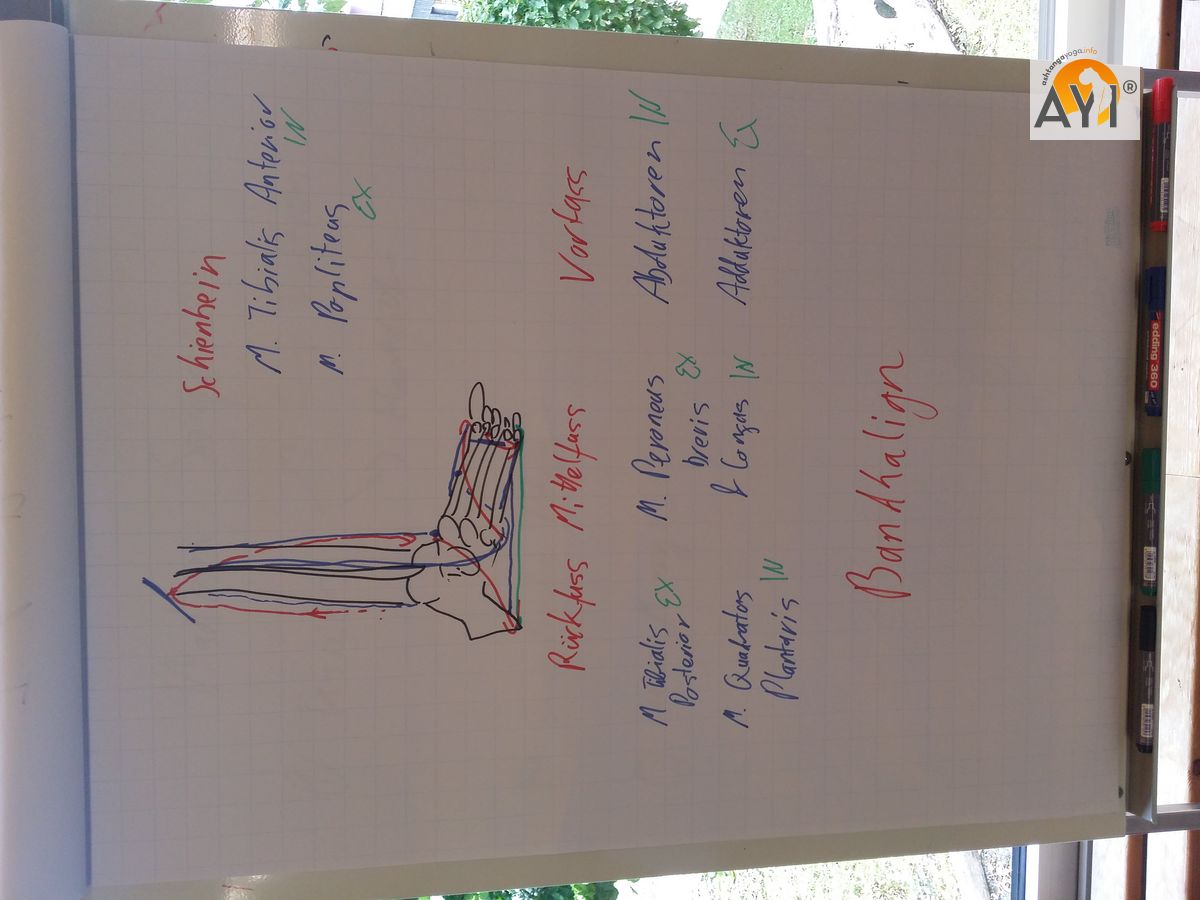 Schienbein
M. Tibialis Anterior
IN
M. Popliteus
EX
Rückfuss Mittelfuss Vorfuss
M Tibialis
Posterior EX
M. Quadratos
Plantaris IN
M. Peroneus
brevis EX
& Longus IN
Abduktoren IN
Adduktoren EX
Bandhalign
ashtangayoga.info
AYI®
edding 360